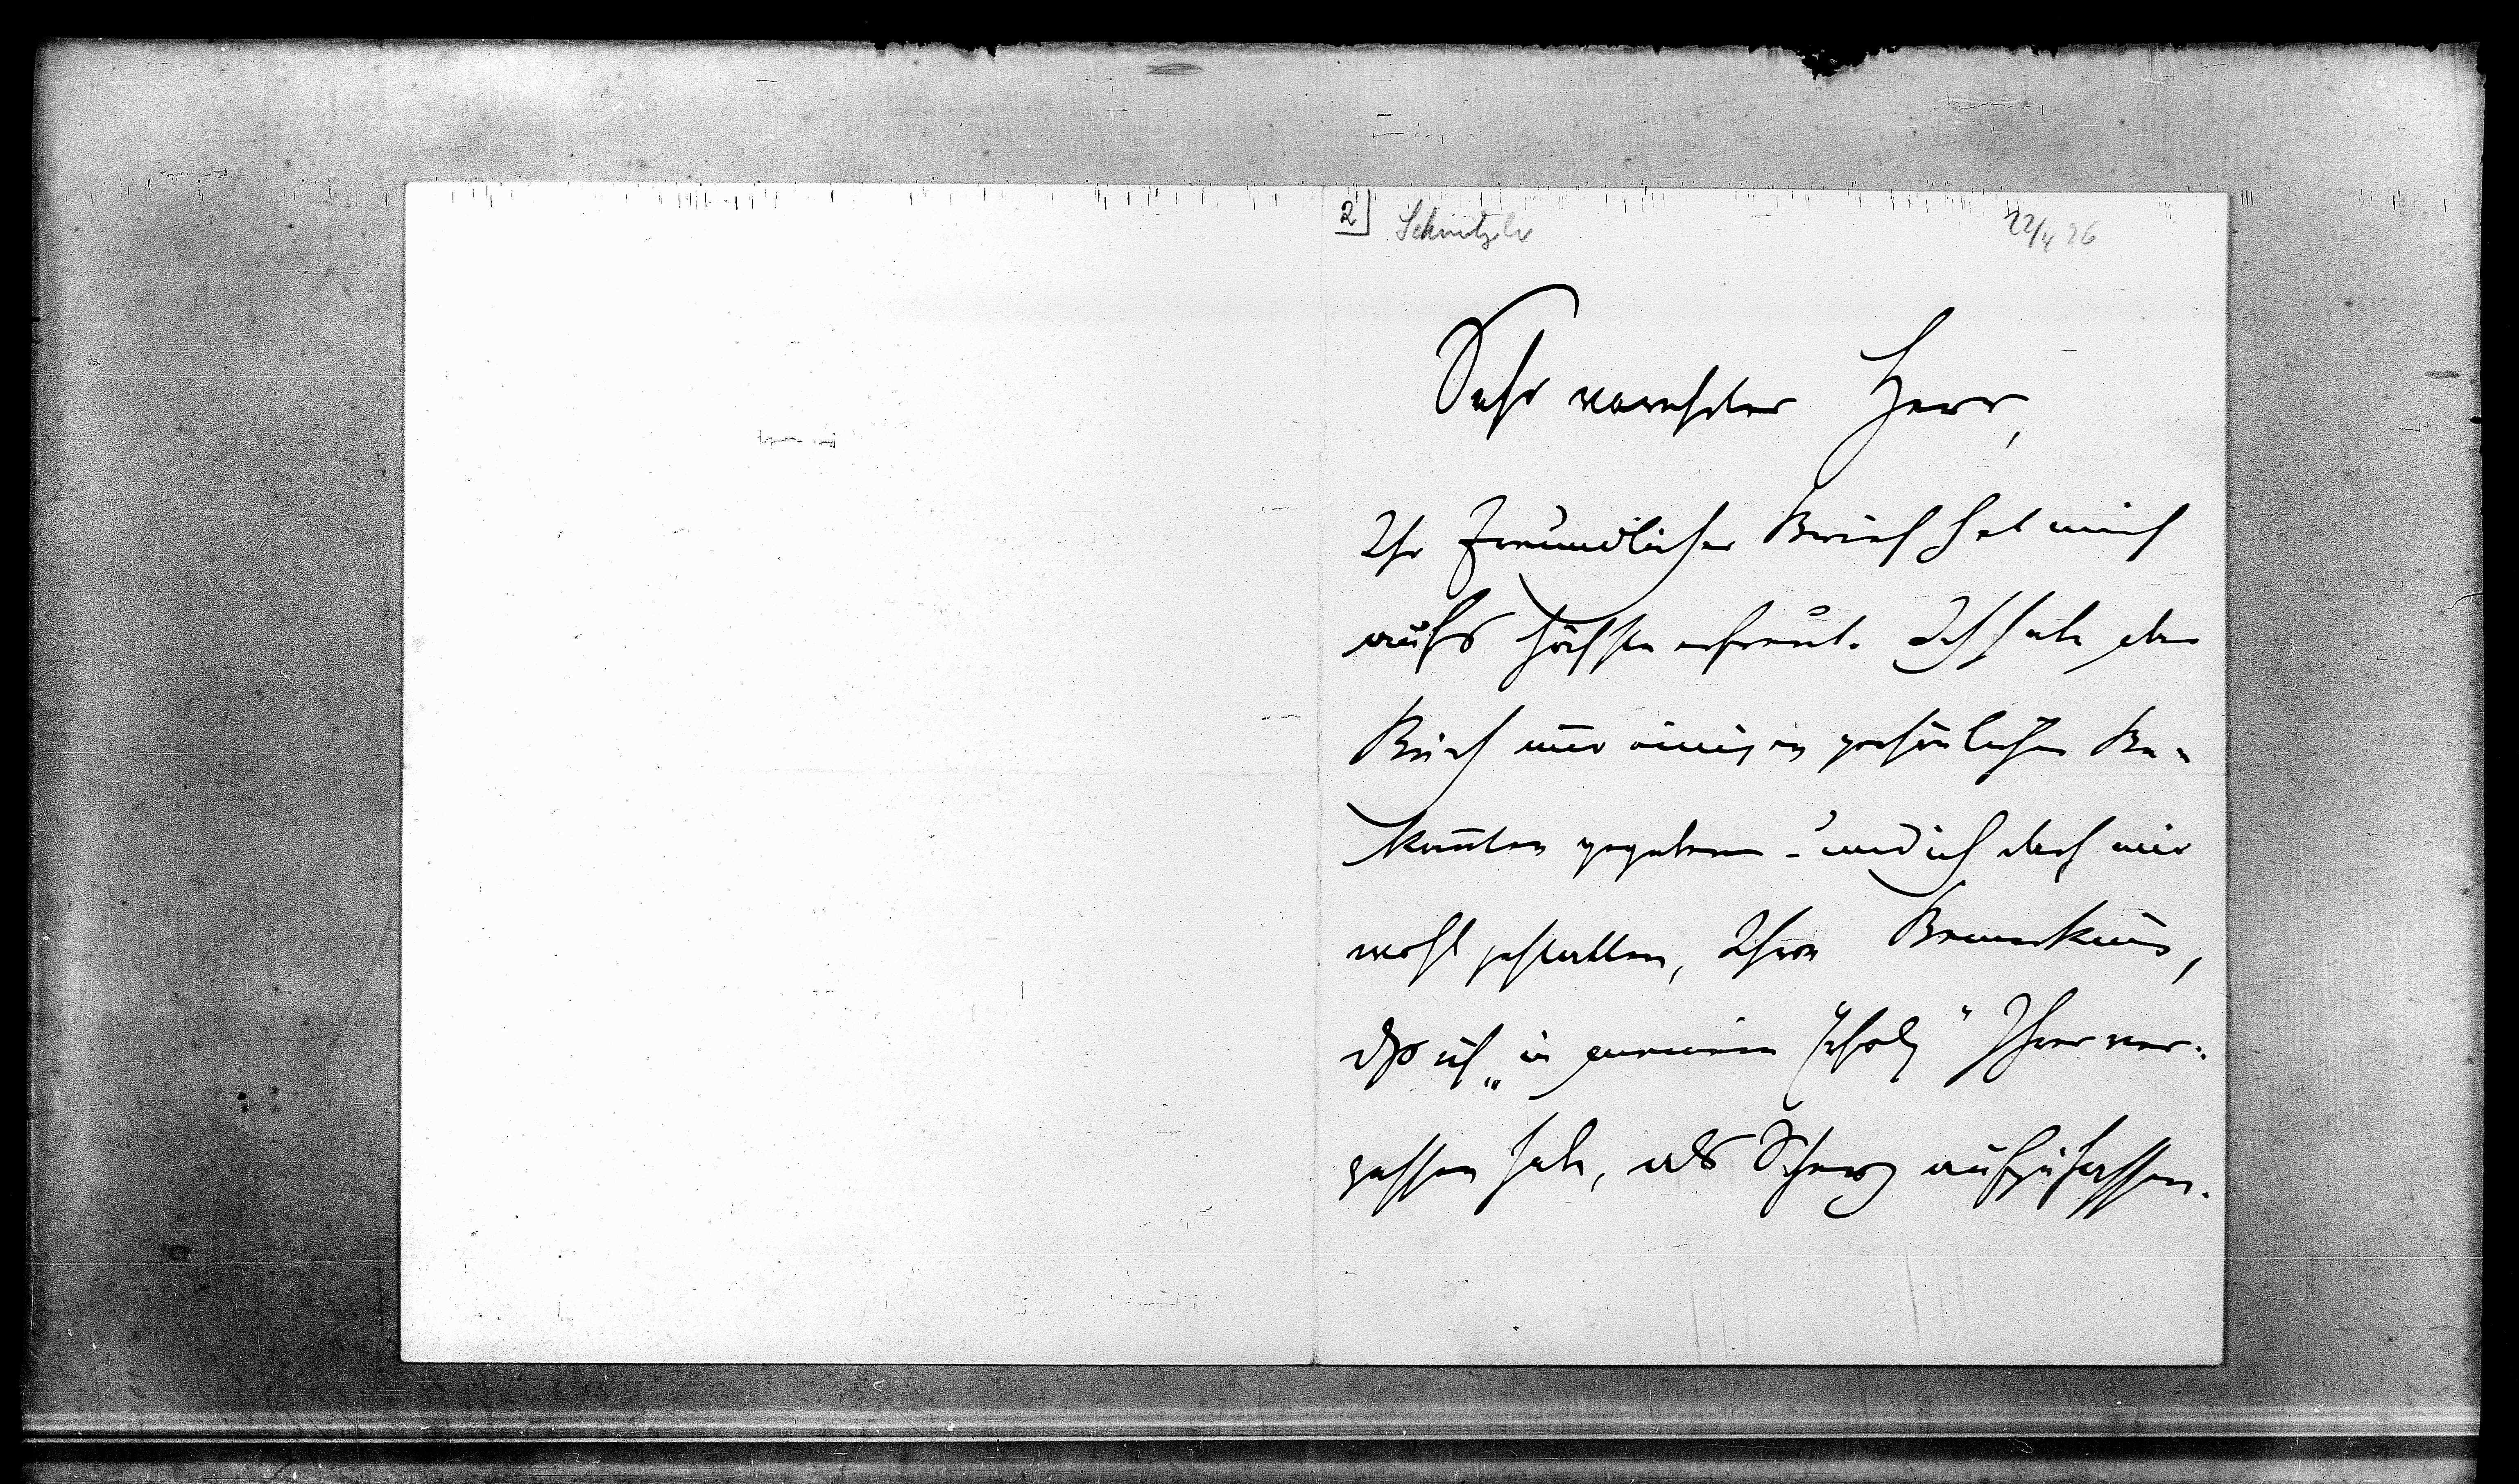 2
Schnitzler
22/4 96
Sehr verehrter Herr,
Ihr freundlicher Brief hat mich
aufs höchste erfreut. Ich habe das
Buch nur einigen persönlichen Be-
kannten gegeben – und ich darf mir
wohl gestatten, Ihre Bemerkung,
dss ich „in meinem Stolz“ Ihrer ver-
gessen habe, als Scherz aufzufassen.